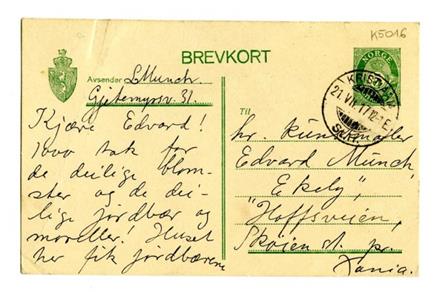 K5016
BREVKORT
NORGE
Avsender L Munch.
Gjetemyrsv. 31.
Kjære Edvard!
1000 tak for
de deilige blom-
ster og de dei-
lige jordbær og
moreller! Huset
her fik jordbærene
KRISTIANIA
21 VII 17
Til
hr. kunstmaler
Edvard Munch,
Ekely,
"Hoffsveien,
Skøien st. pr.
Xania.